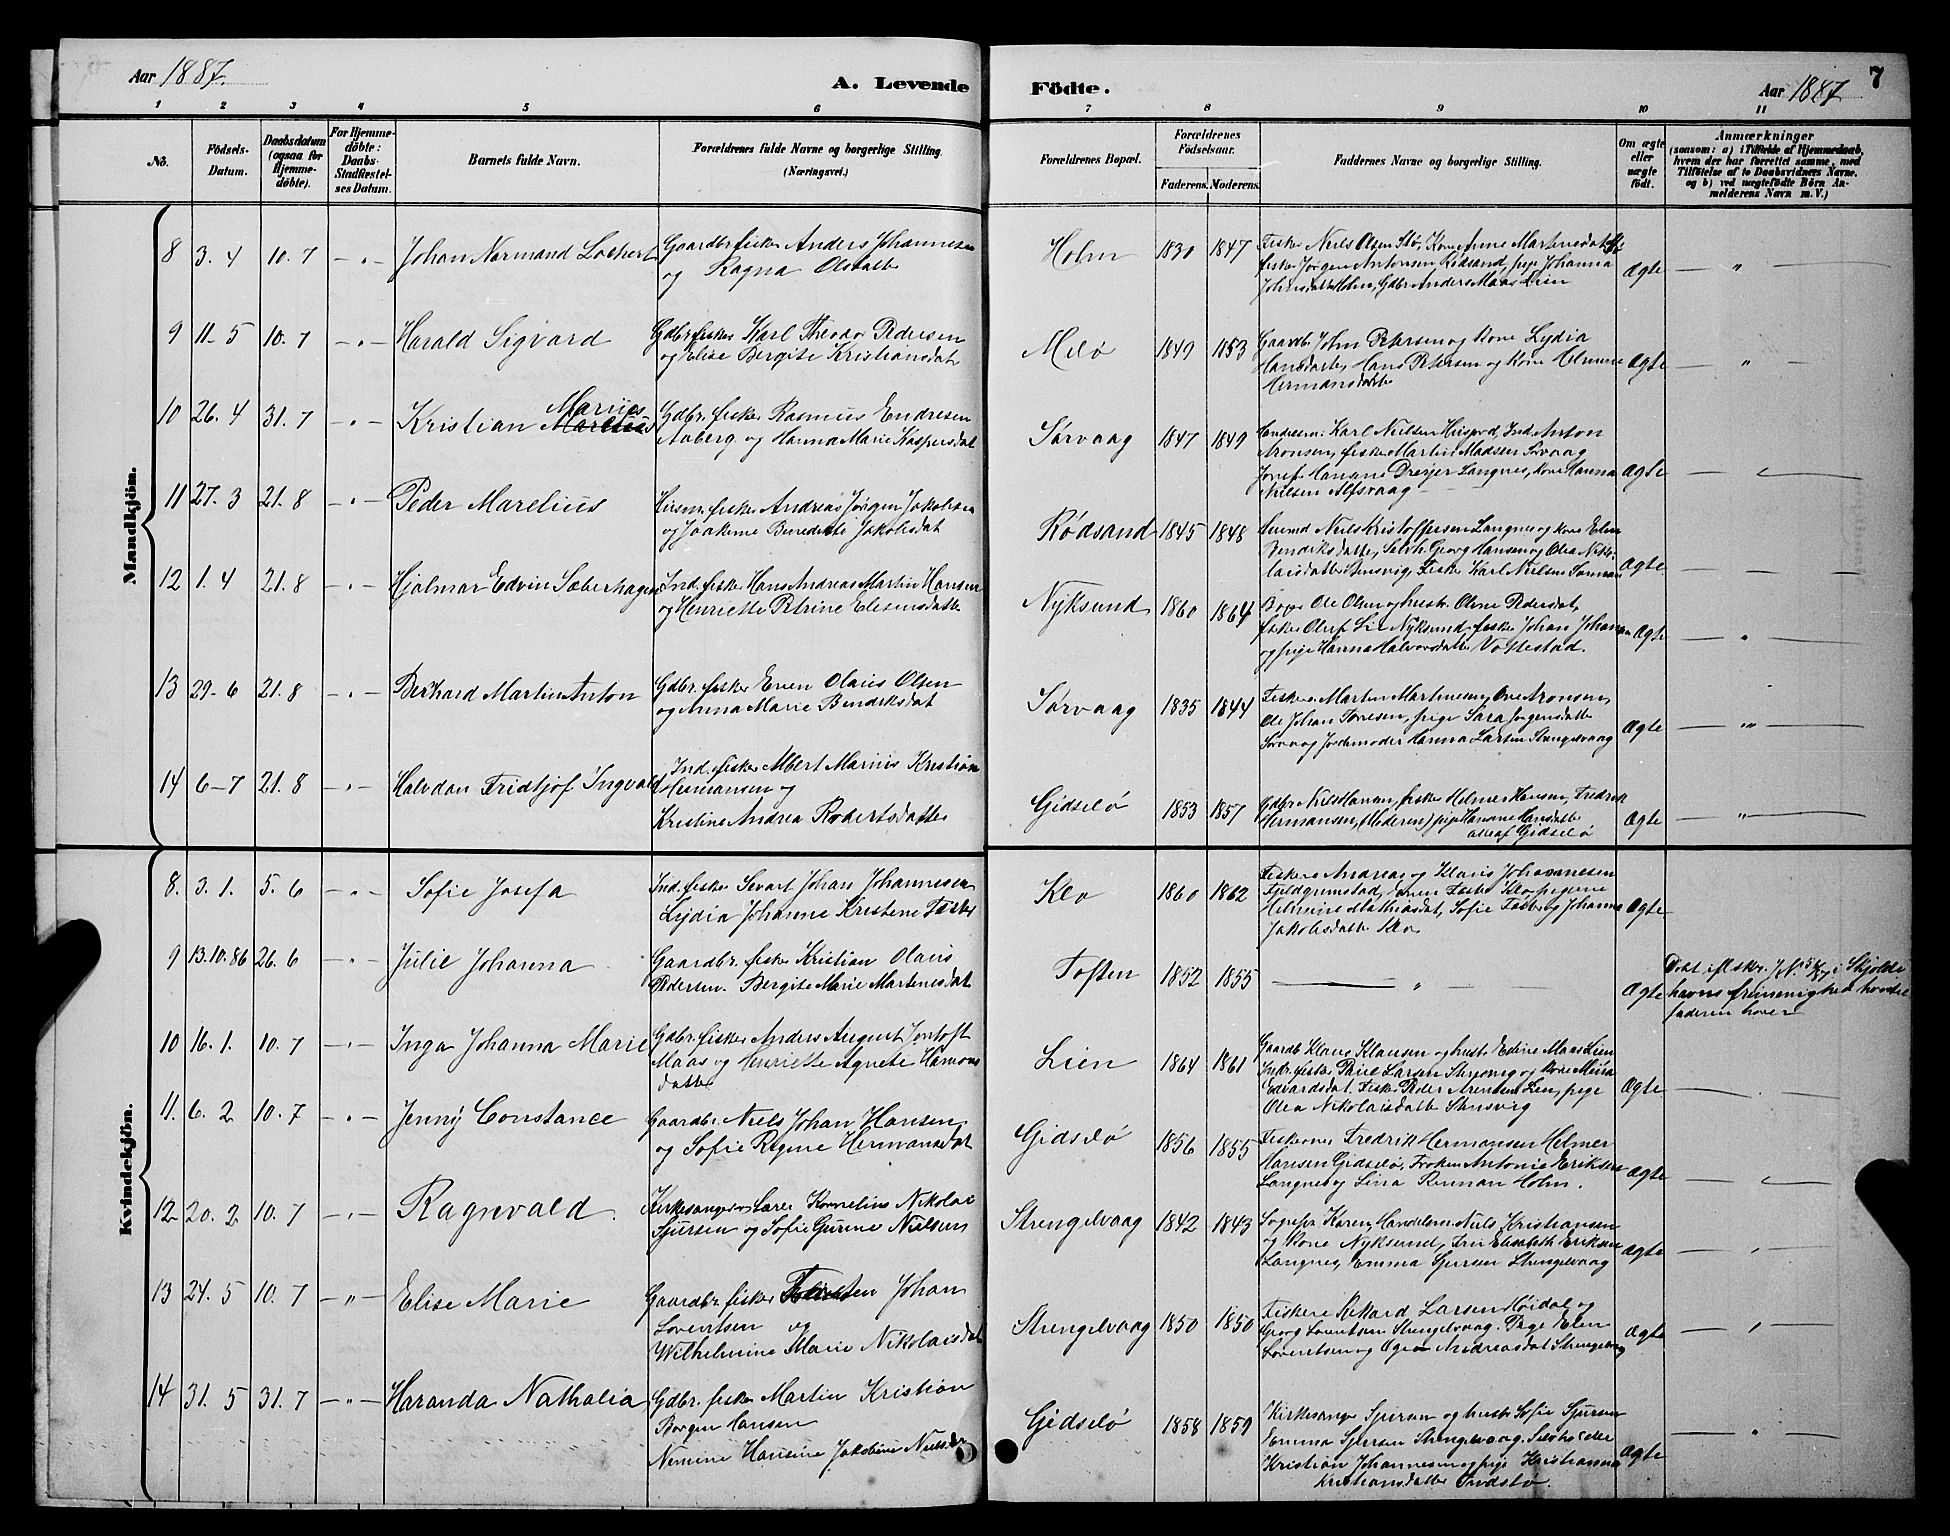 Aar 1887.
A. Levende
1 2 3 4 5 6
No.
Födsels-Datum.
Daabsdatum (ogsaa for Hjemmedöbte).
For Hjemmedöbte: Daabs-Stadfæstelses Datum.
Barnets fulde Navn.
Forældrenes fulde Navne og borgerlige Stilling. (Næringsvei.)
Mandkjön.
8 3. 4 10. 7 — " — Johan Normand Lockert Gaardbr. fisker Anders Johannesen
og Ragna Olsdatter
9 11-5 10. 7 — " — Harald Sigvard Gdbr. fisker Karl Theodor Pedersen
og Elise Bergite Kristiansdat
10 26. 4 31. 7 — " — Kristian Marius Gdbr. fisker Rasmus Endresen
Aaberg og Hanna Marie Kaspersdat
11 27. 3 21. 8 — " — Peder Marelius Husm. fisker Andreas Jørgen Jakobsen
og Joakime Benedikte Jakobsdat
12 1. 4 21. 8 — " — Hjalmar Edvin Sæberhagen Ind. fisker Hans Andreas Martin Hansen
og Henriette Petrine
13 29-6 21. 8 — " — Berhard Martin Anton Gdbr. fisker Even Olaus Olsen
og Anna Marie Bendiksdat
14 6-7 21. 8 — " — Halvdan Fridtjof Ingvald Ind. fisker Albert Marius Kristian
Hermansen og
Kristine Andrea Robertsdatter
Kvindekjön.
8. 3. 1. 5. 6 — " — Sofie Josefa Ind. fisker Sevart Johan Johannesen
Lydia Johanne Kristene
9 13. 10. 86 26. 6 — " — Julie Johanna Gaardbr. fisker Kristian Olaus
Pedersen. Bergite Marie Martenesdat
10 16. 1. 10. 7 — " — Inga Johanna Marie Gdbr. fisker Anders August Jentoft
Maas og Henriette Agnete
datter
11. 6. 2 10. 7 — " — Jenny Constance Gaardbr. Niels Johan Hansen
og Sofie Regine Hermansdat
12 20. 2 10. 7 — " — Ragnvald Kirkesanger Lærer Kornelius Nikolai
Sjursen og Sofie Gurine Nielsen
13 24. 5 10. 7 — " — Elise Marie Gaardbr. fisker Torsten Johan
Lorentsen og
Wilhelmine Marie Nikolaisdat
14 31. 5 31. 7 — " — Haranda Nathalia Gdbr. fisker Martin Kristian
Borgen Hansen
Nemine Hansine Jakobine
Födte.
Aar 1887.
7
7 8 9 10 11
Forældrenes Bopæl.
Forældrenes Födselsaar.
Faderens. Moderens.
Faddernes Navne og borgerlige Stilling.
Om ægte eller uægte födt.
Anmærkninger
(saasom: a) i Tilfælde af Hjemmedaab, hvem der har forrettet samme, med Tilföielse af to Daabsvidners Navne, og b) ved uægtefödte Börn Anmelderens Navn m. V.)
Holm 1830 1847 Fisker Niels Olsen Stø, Kone Anne Martinesdat
fisker Jørgen Antonsen Rødsand, pige Johanna
Holm, Gdbr. Anders Maas Lien Ægte — " —
Melø 1849 1853 Gaardbr. John Petersen og Kone Lydia
Hansdatter, Hans Petersen og Kone
Hermansdatter Ægte — " —
Sørvaag 1847 1849 Karl Nielsen Ind. Anton
Aronsen, fisker Martin Madsen Sørvaag
Dreyer Langnes, Kone Hanna
Nielsen Alfsvaag Ægte
Rødsand 1845 1848 Niels Kristoffersen Langnes og Kone Elen
Bendiksdatter, Georg Hansen og Olea
Stensvig, Fisker Karl Nielsen Ægte
Nyksund 1860 1864 Ole Olsen og hustr. Oline Pedersdat,
fisker Oluf Lie Nyksund, fisker Johan
og pige Hanna Halvorsdatter Vottestad. Ægte — " —
Sørvaag 1835 1844 Fiskere Martin Martinesen, Ove Aronsen,
Ole Johan Toresen, pige Sara Jørgensdatter
Sørvaag Jordemoder Hanna Larsen Strengelvaag Ægte — " —
Gidselø 1853 1857 Gdbr. Niels Hansen, fisker Helmer Hansen, Fredrik
Hermansen, (Moderen) pige Hansine Hansdatter
alle af Gidselø Ægte — " —
Klo 1860 1862 Fiskere Andreas og Klaus Johannesen
Fjeldgrumstad, Klo, pigerne
Helmine Mathiasdat, Sofie og Johanna
Jakobsdatter Klo Ægte
Toften 1852 1855 — " — Ægte Døbt ifl. skr. i
faderen hører
Lien 1864 1861 Gaardb. Klaus Klausen og hustr. Edine Maas Lien
Indr. fisker Paul Larsen og Kone Mina
Edvardsdat, Fisker Peder Lien, pige
Olea Nikolaisdatter Stensvig Ægte
Gidselø 1856 1855 Fiskerne Fredrik Hermansen Helmer
Hansen Gidselø, Frøken Antonie Eriksen
Langnes og Lina Holm. Ægte
Strengelvaag 1842 1843 Sognepr. Karen, Handelsm. Niels Kristiansen
og Kone Nyksund, Fru Elisabeth Eriksen
Langnes, Emma Sjursen Strengelvaag Ægte — " —
Strengelvaag 1850 1850 Fiskere Rikard Larsen Høidal og
Georg Lorentsen Strengelvaag. Pige Elen
Lorentsen og Andreasdat Strengelvaag Ægte — " —
Gidselø 1858 1859 Kirkesanger Sjursen og hustr. Sofie Sjursen
Emma Sjursen Strengelvaag.
Kristian Johannesen og pige Kristianna
Kristiansdatter Ægte — " —